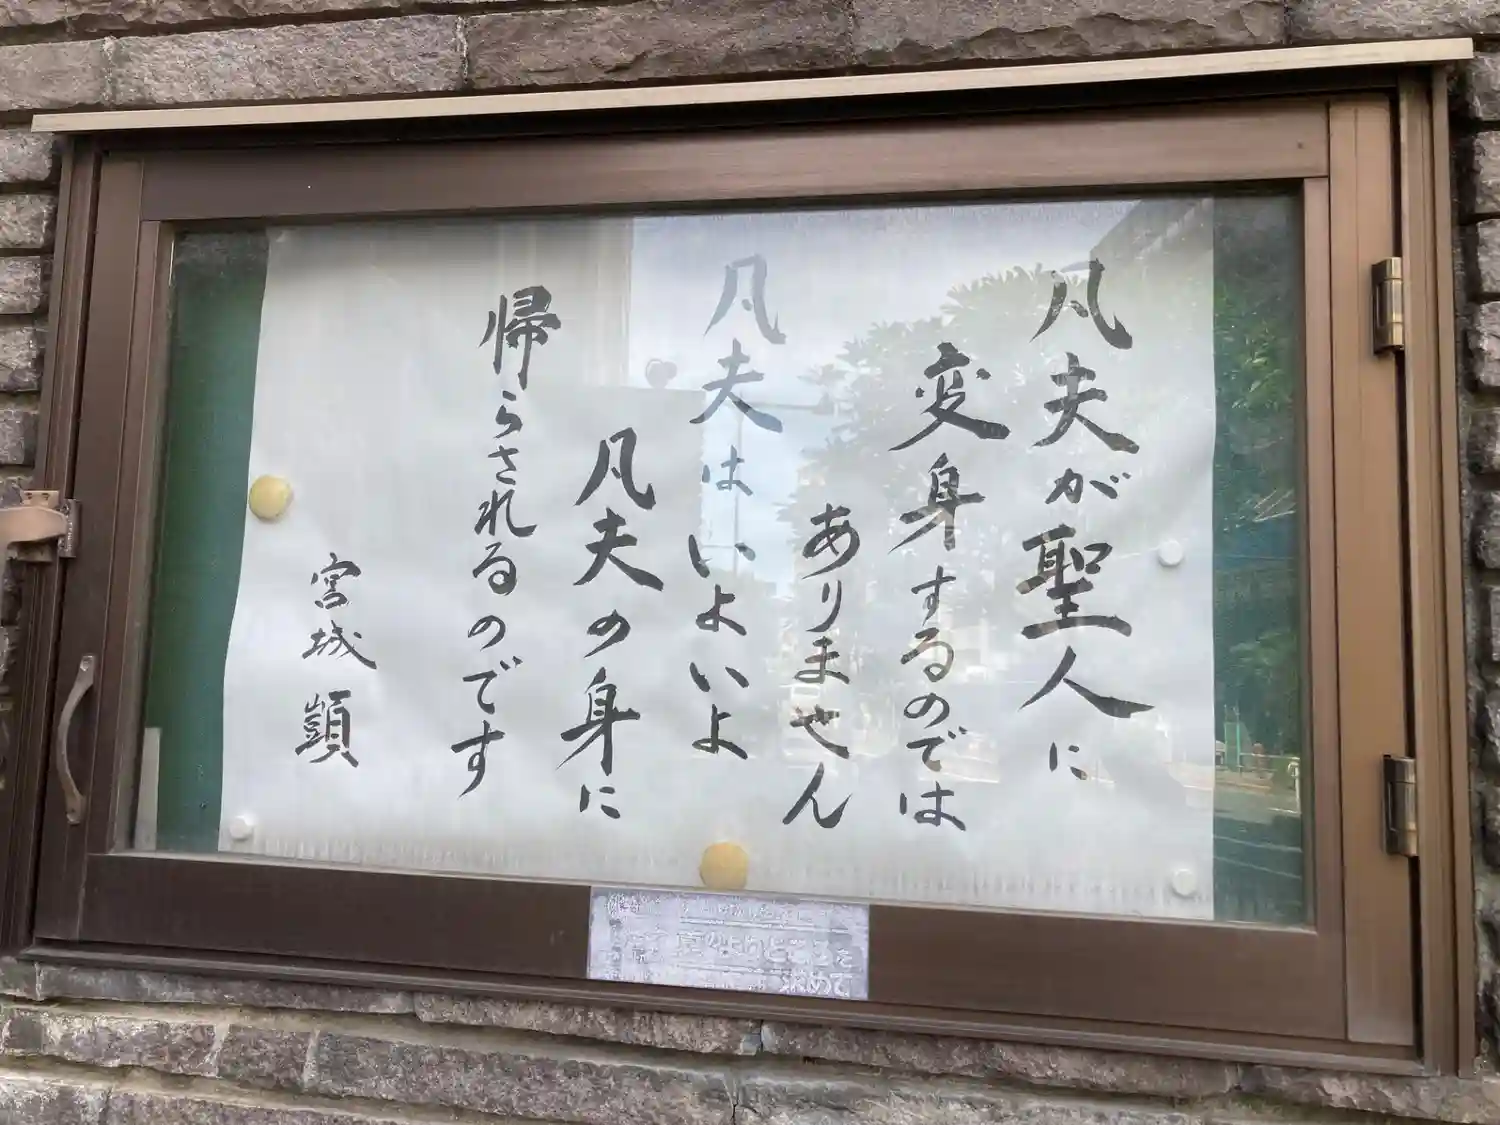 凡夫が聖人に
変身するのでは
ありません
凡夫はいよいよ
凡夫の身に
帰らされるのです
宮城 顗
真のよりどころを
求めて